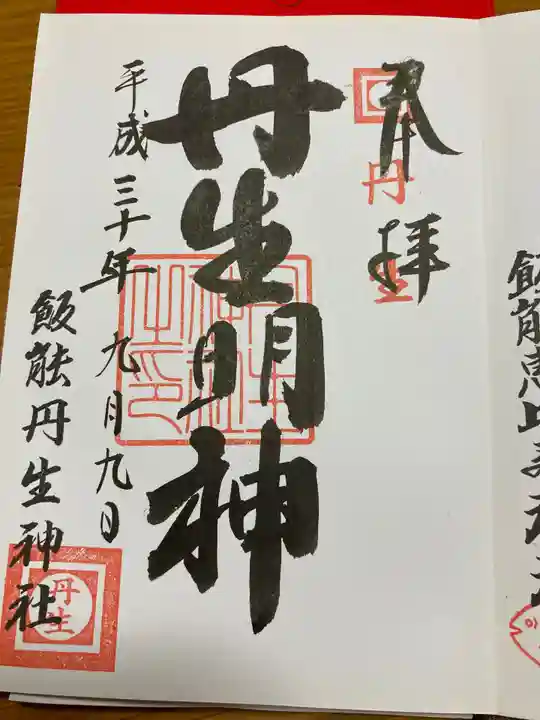 奉拝
丹生
丹生明神
平成三十年九月九日
飯能丹生神社
丹生
飯能恵比寿